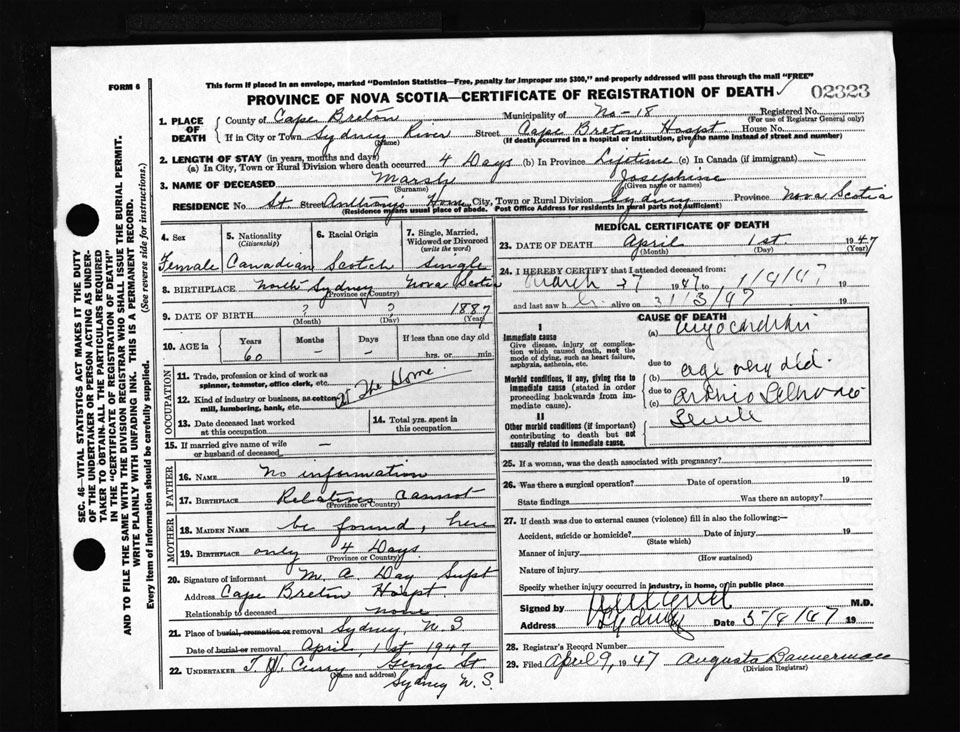 FORM 6
This form if placed in an envelope, marked "Dominion Statistics—Free, penalty for improper use $300," and properly addressed will pass through the mail "FREE"
PROVINCE OF NOVA SCOTIA—CERTIFICATE OF REGISTRATION OF DEATH
02323
1. PLACE OF DEATH
County of Cape Breton Municipality of No-18 Registered No.
(For use of Registrar General only)
If in City or Town Sydney River Street Cape Breton Hospt. House No.
(Name) (If death occurred in a hospital or institution, give the name instead of street and number)
2. LENGTH OF STAY (in years, months and days)
(a) In City, Town or Rural Division where death occurred 4 Days (b) In Province Lifetime (c) In Canada (if immigrant) -
3. NAME OF DECEASED Marsh Josephine
(Surname) (Given name or names)
RESIDENCE No. St. Anthonys Home City, Town or Rural Division Sydney Province Nova Scotia
(Residence means usual place of abode. Post Office Address for residents in rural parts not sufficient)
SEC. 46—VITAL STATISTICS ACT MAKES IT THE DUTY
OF THE UNDERTAKER OR PERSON ACTING AS UNDER-
TAKER TO OBTAIN ALL THE PARTICULARS REQUIRED
IN THE "CERTIFICATE OF REGISTRATION OF DEATH"
AND TO FILE THE SAME WITH THE DIVISION REGISTRAR WHO SHALL ISSUE THE BURIAL PERMIT.
WRITE PLAINLY WITH UNFADING INK. THIS IS A PERMANENT RECORD.
Every item of information should be carefully supplied. (See reverse side for instructions.)
4. Sex
Female
5. Nationality
(Citizenship)
Canadian
6. Racial Origin
Scotch
7. Single, Married,
Widowed or Divorced
(write the word)
Single
8. BIRTHPLACE North Sydney Nova Scotia
(Province or Country)
9. DATE OF BIRTH ? ? 1887
(Month) (Day) (Year)
10. AGE in Years Months Days If less than one day old
60 - - hrs. or min.
OCCUPATION
11. Trade, profession or kind of work as
spinner, teamster, office clerk, etc.
12. Kind of industry or business, as cotton
mill, lumbering, bank, etc.
At The Home
13. Date deceased last worked
at this occupation
14. Total yrs. spent in
this occupation
15. If married give name of wife
or husband of deceased -
FATHER
16. NAME No information
17. BIRTHPLACE Relatives Cannot
(Province or Country)
MOTHER
18. MAIDEN NAME be found, here
19. BIRTHPLACE only 4 Days.
(Province or Country)
20. Signature of informant M. A. Day Supt
Address Cape Breton Hospt.
Relationship to deceased none
21. Place of burial, cremation or removal Sydney, N. S
Date of burial or removal April, 1st, 1947
22. UNDERTAKER T. W. Curry George St
(Name and address) Sydney N. S.
MEDICAL CERTIFICATE OF DEATH
23. DATE OF DEATH April 1st. 1947
(Month) (Day) (Year)
24. I HEREBY CERTIFY that I attended deceased from:
March 27 1947 to 1/4/47 19
and last saw h alive on 31/3/47 19
CAUSE OF DEATH
I
Immediate cause
Give disease, injury or complica-
tion which caused death, not the
mode of dying, such as heart failure,
asphyxia, asthenia, etc.
(a)
due to
Morbid conditions, if any, giving rise to
immediate cause (stated in order
proceeding backwards from im-
mediate cause).
(b) age
due to
(c)
Senile
II
Other morbid conditions (if important)
contributing to death but not
causally related to immediate cause.
25. If a woman, was the death associated with pregnancy?
26. Was there a surgical operation? Date of operation 19
State findings Was there an autopsy?
27. If death was due to external causes (violence) fill in also the following:—
Accident, suicide or homicide? Date of injury 19
(State which)
Manner of injury
(How sustained)
Nature of injury
Specify whether injury occurred in industry, in home, or in public place
Signed by M.D.
Address Sydney Date 5/4/47 19
28. Registrar's Record Number
29. Filed April 9, 1947 Augusta Bannerman
(Division Registrar)